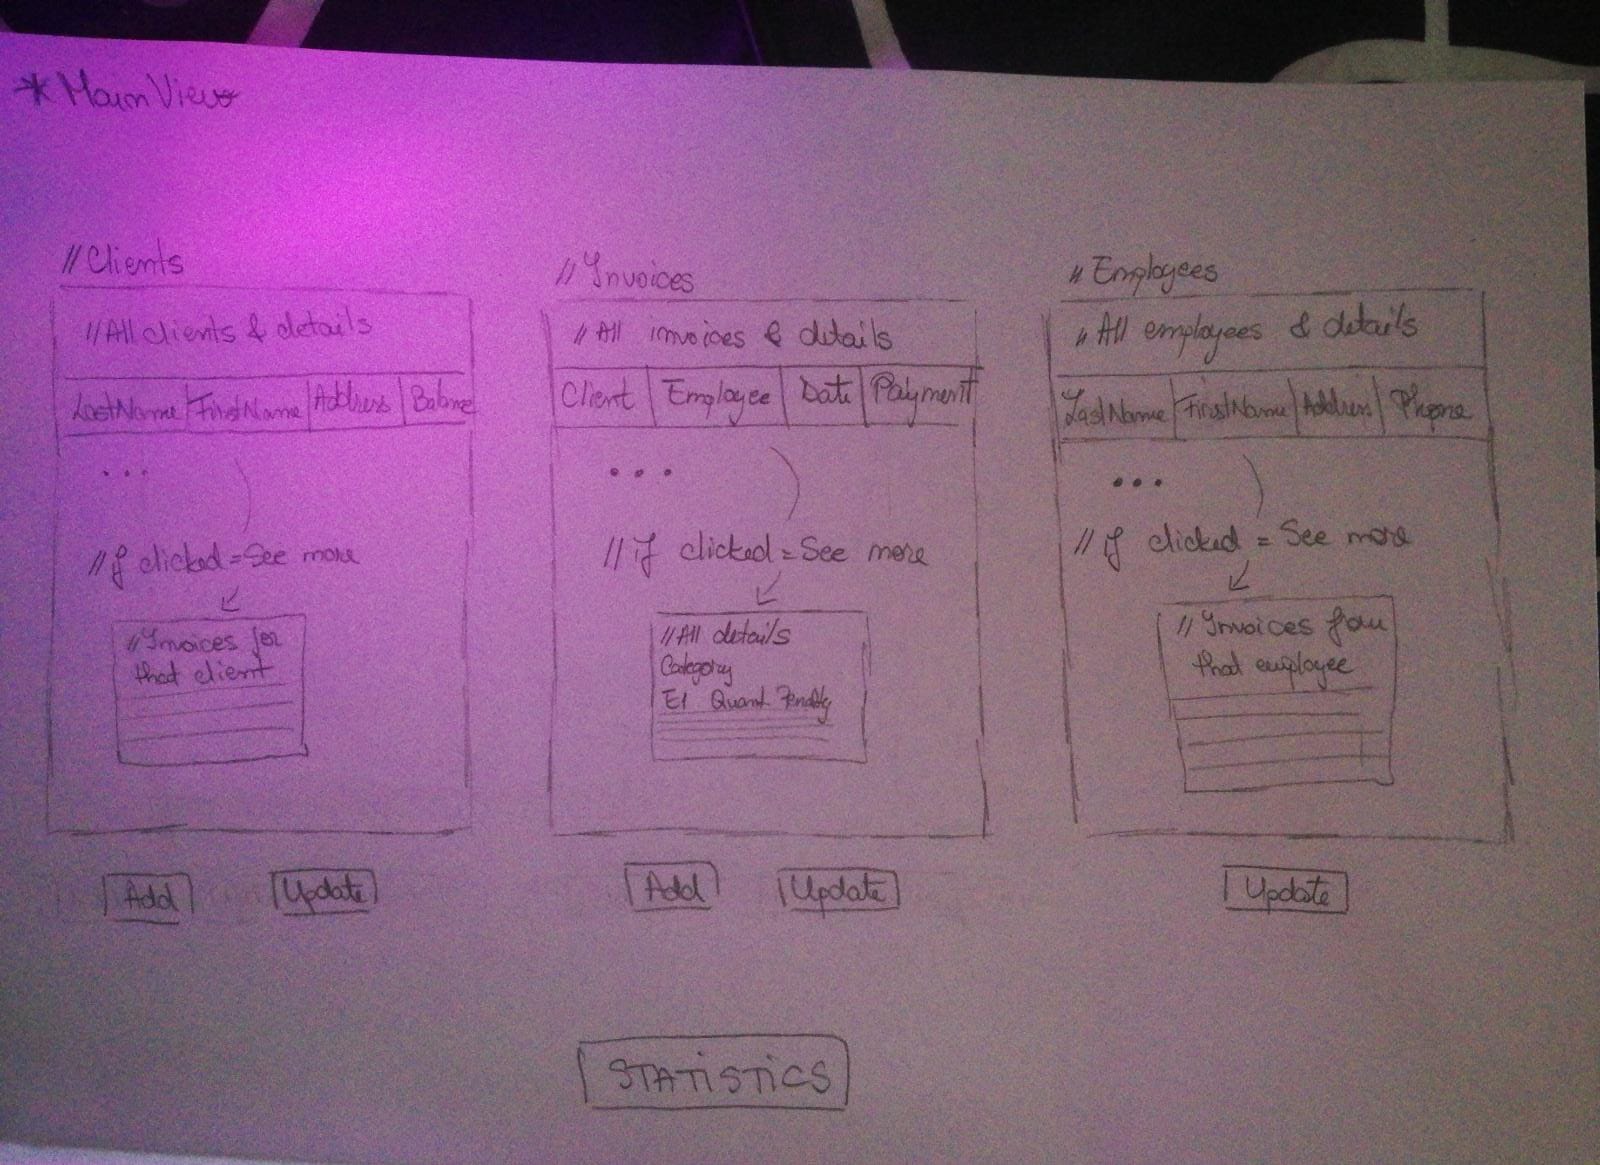 *MainView
//Clients
//All clients & details
LastName FirstName Address Balance
...
//If clicked=See more
//Invoices for
that client
Add Update
//Invoices
//All invoices & details
Client Employee Date Payment
...
//if clicked=See more
//All details
Category
El Quant Penalty
Add Update
//Employees
//All employees & details
LastName FirstName Address Phone
...
//if clicked = See more
//Invoices from
that employee
Update
STATISTICS